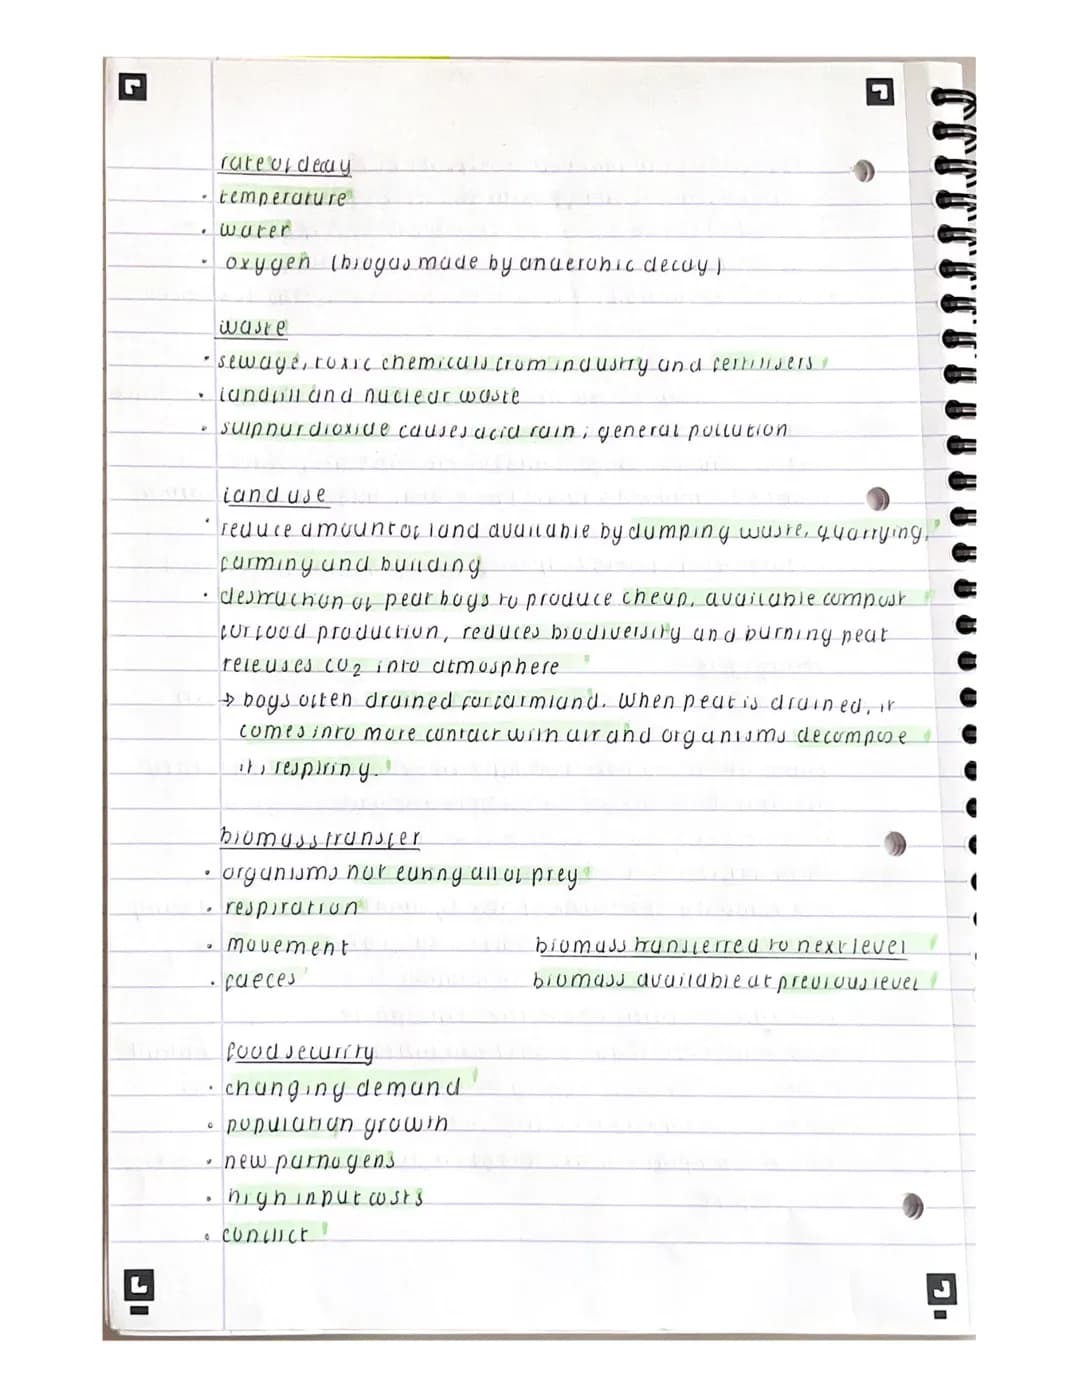 rate of decay
· temperature
· water
· oxygen (biogas made by anaerobic decay)
waste
· sewage, toxic chemicals from industry and fertilisers
· landfill and nuclear waste
· sulphur dioxide causes acid rain; general pollution
land use
· reduce amount of land available by dumping waste, quarrying,
farming and building
· destruction of peat bogs to produce cheap, available compost
for food production, reduces biodiversity and burning peat
releases CO₂ into atmosphere
→ bogs often drained for farmland. When peat is drained, it
comes into more contact with air and organisms decompose
it, respiring.
biomass transfer
· organisms not eating all of prey
· respiration
· movement
· faeces
biomass transferred to next level
biomass available at previous level
food security
· changing demand
· population growth
· new pathogens
· high input costs
· conflict